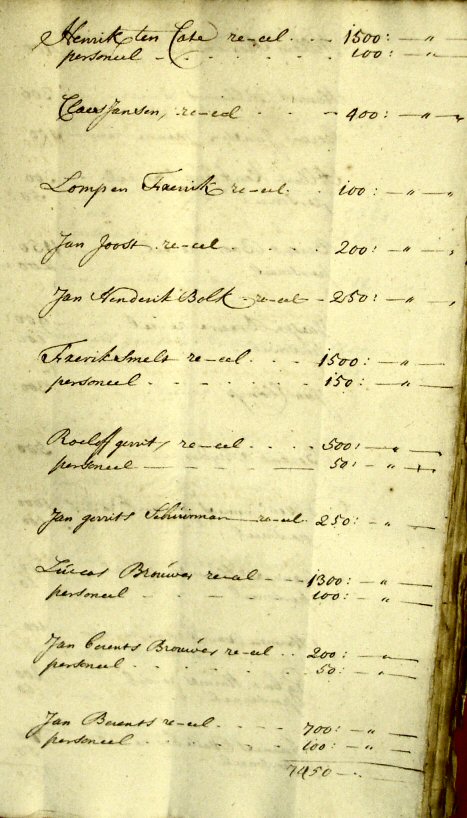 Henrik ten Cate re-eel . . . 1500:—"—
personeel — . . . . . 100:—"—
Claas Jansen, re-eel — 400:—"—
Lompen Frerik re-eel . . 100:—"—
Jan Joost re-eel . . . 200:—"—
Jan Henderik Bolk re-eel — 250:—"—
Frerik Smelt re-eel . . . 1500:—"—
personeel . . . . . 150:—"—
Roeloff gerrits re-eel . . . 500:—"—
personeel — — — — 50:—"—
Jan gerrits Schuurman re-eel 250:—"—
Lúcas Broúwer re-eel — 1300:—"—
personeel . . . . . 100:—"—
Jan berents Broúwer re-eel . . 200:—"—
personeel . . . . . 50:—"—
Jan Berents re-eel . . . . 700:—"—
personeel . . . . . 100:—"—
7450 — . .